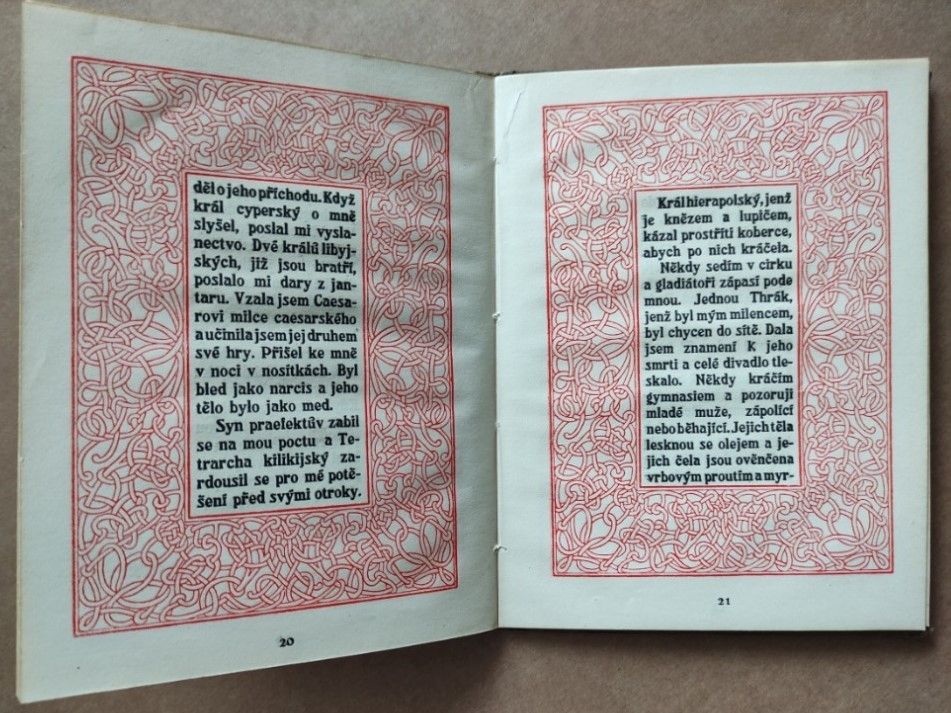 děl o jeho příchodu. Když
král cyperský o mně
slyšel, poslal mi vysla-
nectvo. Dvé králů libyj-
ských, již jsou bratří,
poslalo mi dary z jan-
taru. Vzala jsem Caesa-
rovi milce caesarského
a učinila jsem jej druhem
své hry. Přišel ke mně
v noci v nosítkách. Byl
bled jako narcis a jeho
tělo bylo jako med.
Syn praefektův zabil
se na mou poctu a Te-
trarcha kilikijský za-
rdousil se pro mé potě-
šení před svými otroky.
20
Král hierapolský, jenž
je knězem a lupičem,
kázal prostříti koberce,
abych po nich kráčela.
Někdy sedím v cirku
a gladiátoři zápasí pode
mnou. Jednou Thrák,
jenž byl mým milencem,
byl chycen do sítě. Dala
jsem znamení K jeho
smrti a celé divadlo tle-
skalo. Někdy kráčím
gymnasiem a pozoruji
mladé muže, zápolící
nebo běhající. Jejich těla
lesknou se olejem a je-
jich čela jsou ověnčena
vrbovým proutím a myr-
21